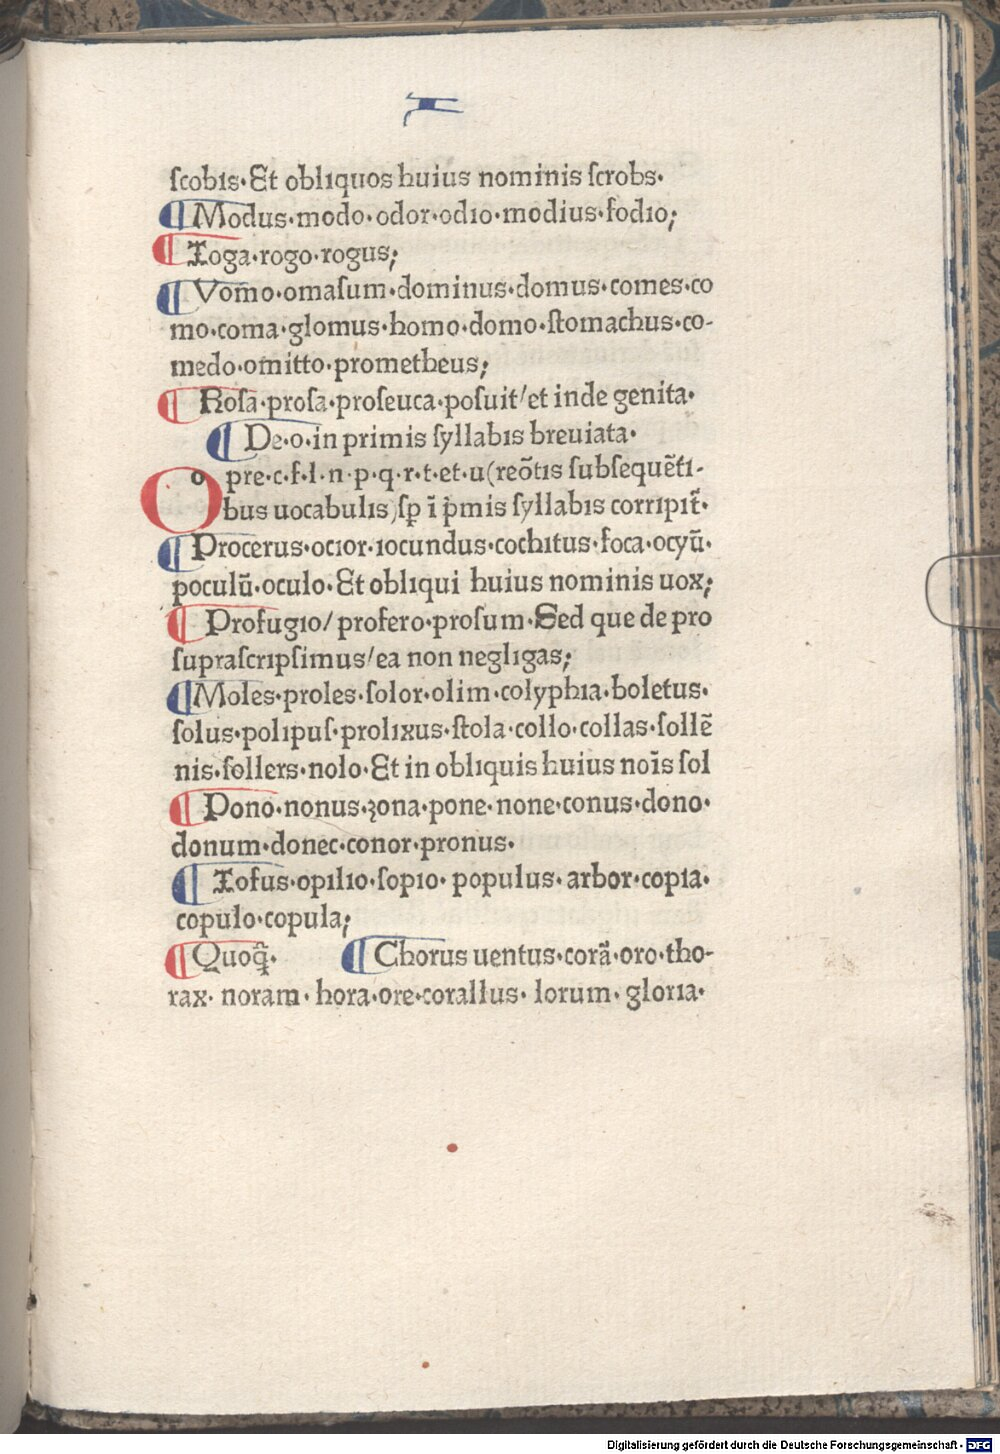 I
ſcobıs·Et oblıquos huius nominis ſcrobs·
¶ Modus·modo·odor·odıo·modius·fodıo;
¶ Toga·rogo·rogus;
¶ Vom̄o·omaſum·dominus·domus·comes·co
mo·coma·glomus·homo·domo·ſtomachus·co-
medo·omitto·prometheus;
¶ Roſa·proſa·proſeuca·poſuit/et inde genita·
¶ De·o·in primis ſyllabıs breuiata·
O o pre·c·f·l·n·p·q·r·t·et·u(reo᷑tis ſubſeque᷑tı-
bus uocabulis)ſꝑ ī pͥmis ſyllabıs corrıpıt᷑·
¶ Procerus·ocıor·ıocundus·cochıtus·foca·ocyū·
poculū·oculo·Et oblıqui huius nominis uox;
¶ Profugıo/ profero·proſum·Sed que de pro
ſupraſcrıpſimus/ea non neglıgas;
¶ Moles·proles·ſolor·olim·colyphıa·boletus·
ſolus·polıpuſ·prolıxus·ſtola·collo·collas·ſollē
nis·ſollers·nolo·Et in oblıquis huius noīs ſol
¶ Pono·nonus·zona·pone·none·conus·dono·
donum·donec·conor·pronus·
¶ Tofus·opılıo·ſopıo·populus·arbor·copıa·
copulo·copula;
¶ Quoq̄· ¶ Chorus uentus·corā·oro·tho-
rax·noram·hora·ore·corallus·lorum·glorıa·
Digitalisierung gefördert durch die Deutsche Forschungsgemeinschaft - DFG